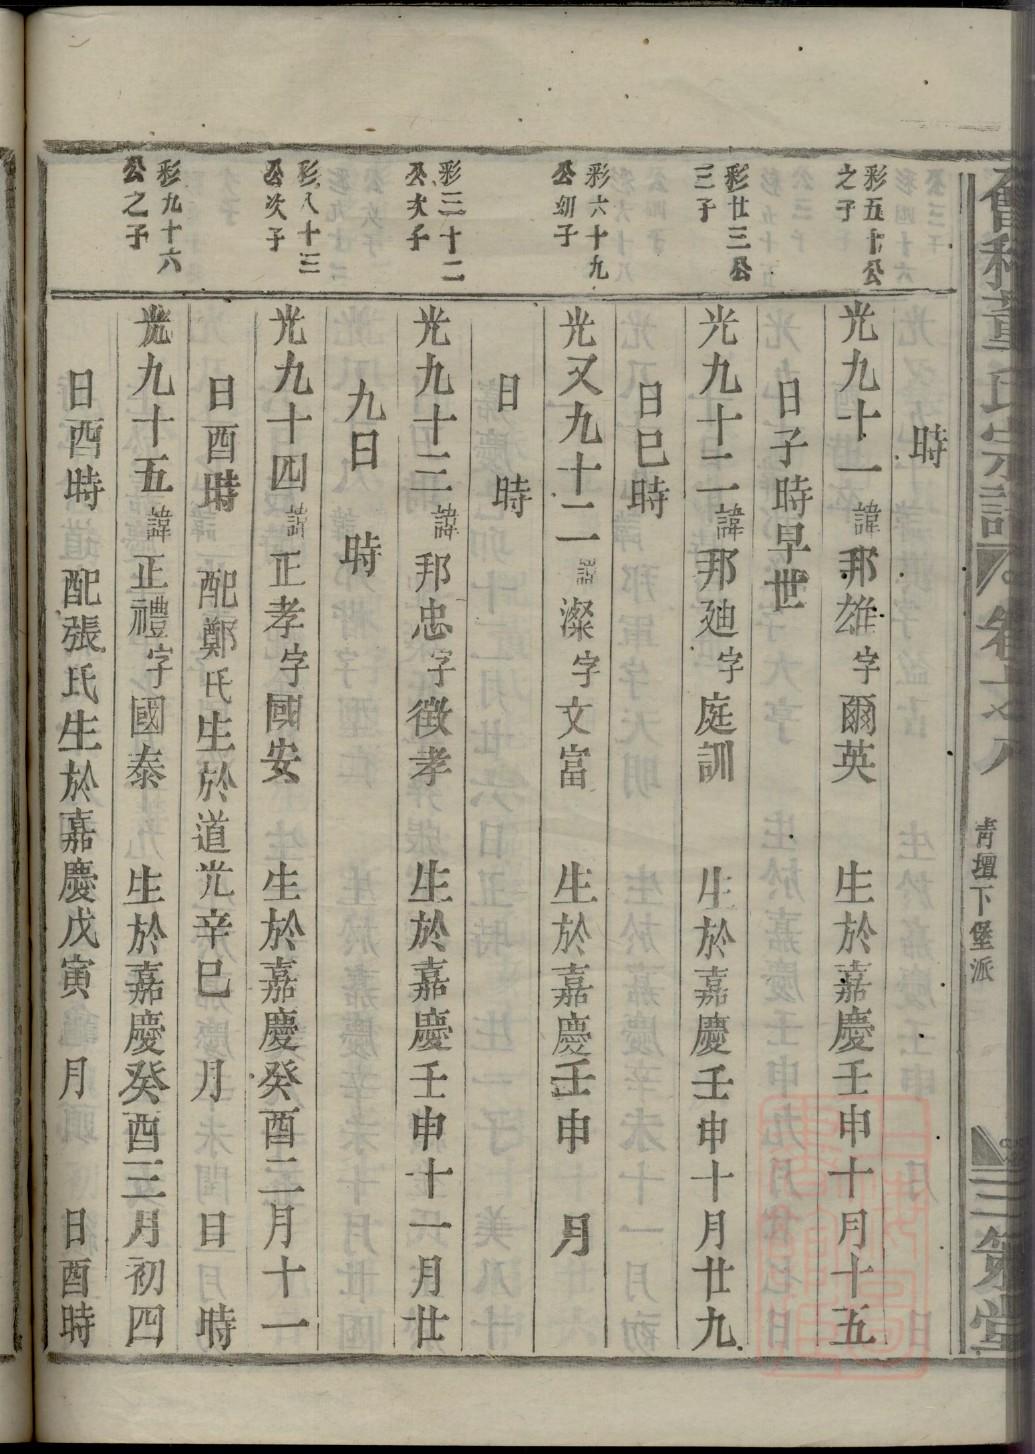 時
彩五十公
之子
光九十一諱邦雄字爾英 生於嘉慶壬申十月十五
日子時早世
彩廿三公
三子
光九十二諱邦廸字庭訓 生於嘉慶壬申十月廿九
日巳時
彩六十九
公幼子
光又九十二諱濴字文富 生於嘉慶壬申 月
日 時
彩三十二
公次子
光九十三諱邦忠字徵孝 生於嘉慶壬申十一月廿
九日 時
彩八十三
公次子
光九十四諱正孝字國安 生於嘉慶癸酉二月十一
日酉時 配鄭氏生於道光辛巳 月 日 時
彩九十六
公之子
光九十五諱正禮字國泰 生於嘉慶癸酉三月初四
日酉時 配張氏生於嘉慶戊寅 月 日酉時
董氏宗譜 卷之八 青壇下堡派 三策堂